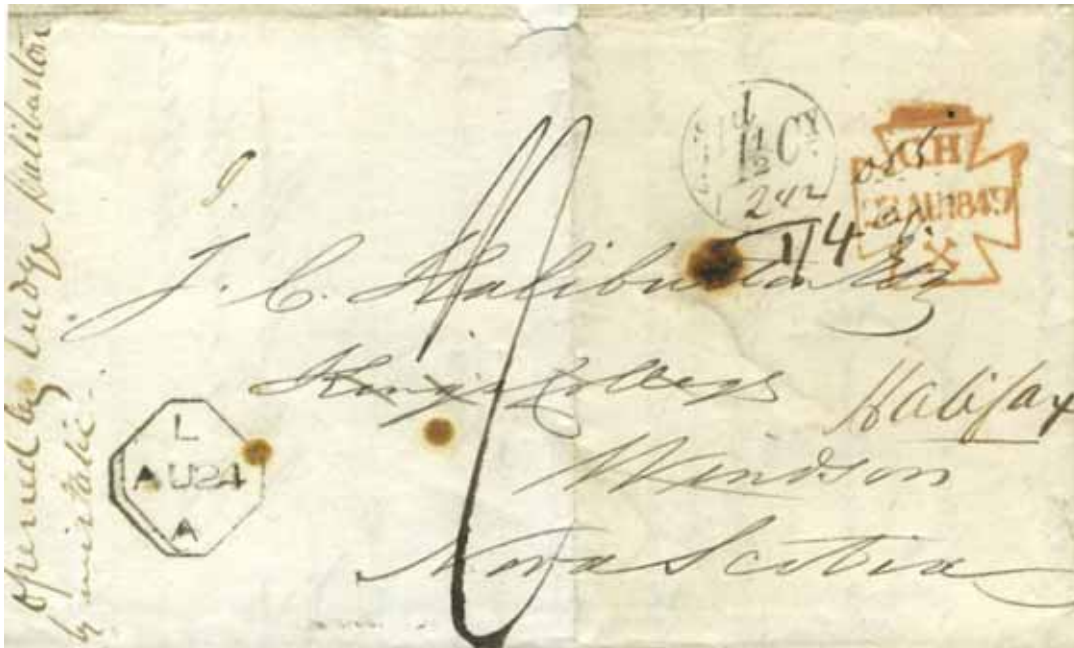 opened by Judge Haliburton
by mistake.
1½ CY
CH
23 AU 1849
X
1/4
J. C. Haliburton Esq
King's College
Halifax
Windsor
Nova Scotia
L
AU 24
A